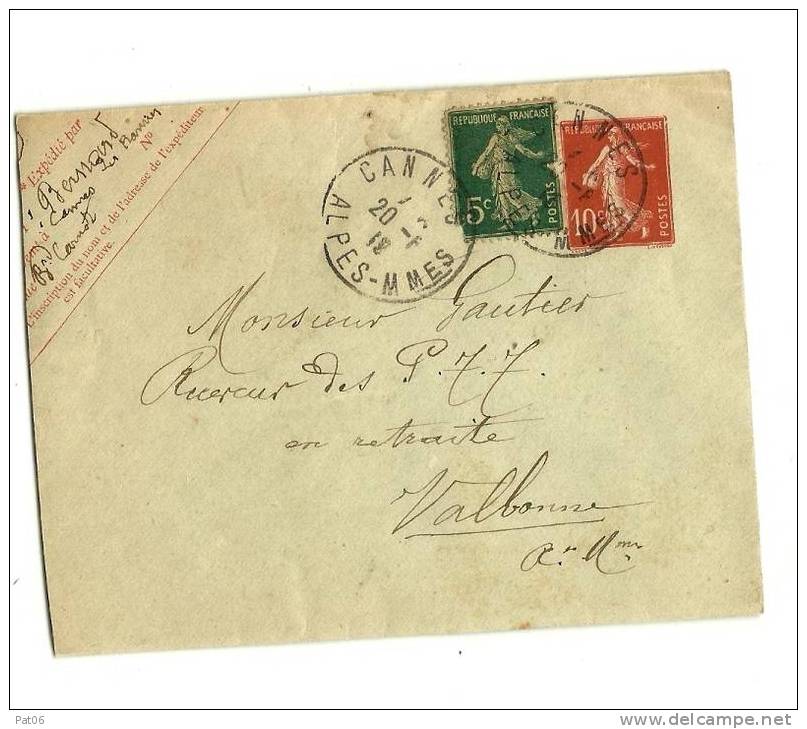 * Expédié par
Bernard
Nº
à Cannes
Bd Carnot
L'inscription du nom et de l'adresse de l'expéditeur
est facultative.
CANNES
20
ALPES-MMES
REPUBLIQUE FRANÇAISE
5c
POSTES
REPUBLIQUE FRANÇAISE
10c
POSTES
Monsieur Gautier
Receveur des P. T. T.
en retraite
Valbonne
A.es Mmes
Pat06
www.delcampe.net